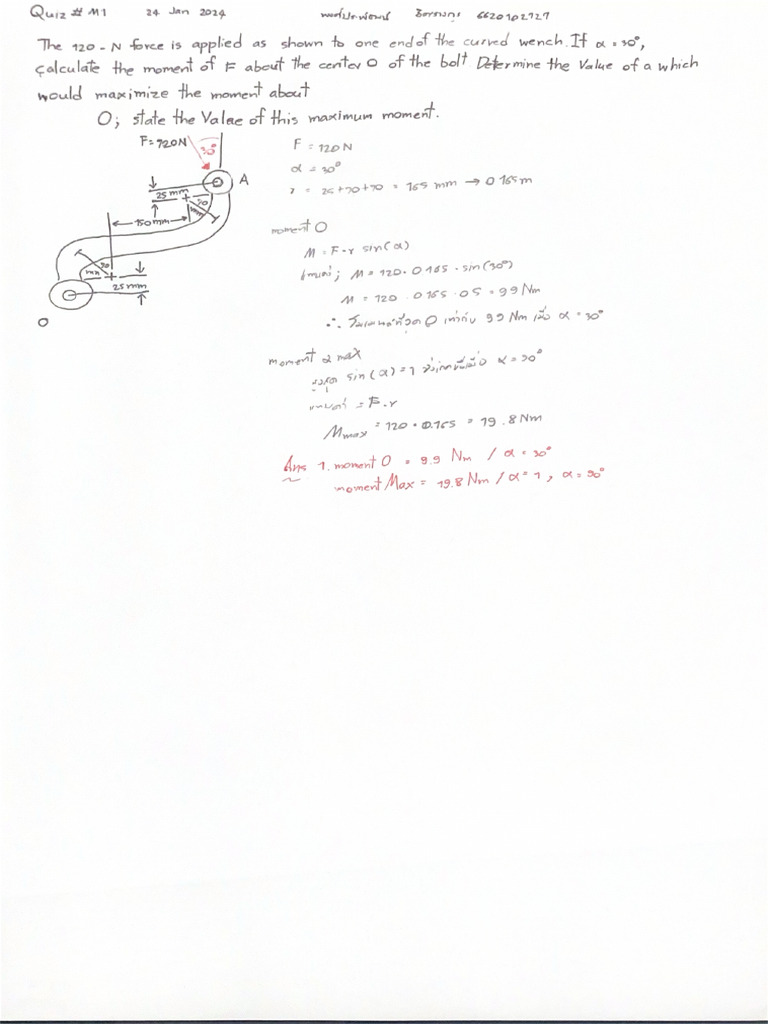 Quiz # M1 24 Jan 2024 6620102727
The 120-N force is applied as shown to one end of the curved wench. If α = 30°,
Calculate the moment of F about the center O of the bolt Determine the Value of a which
would maximize the moment about
O; state the Value of this maximum moment.
F=120N 30°
A
25 mm
70
mm
150mm
70
mm
25 mm
O
F = 120 N
α = 30°
r = 25+70+70 = 165 mm → 0.165 m
moment O
M = F·r sin(α)
แทนค่า; M = 120 · 0.165 · sin(30°)
M = 120 · 0.165 · 0.5 = 9.9 Nm
∴ O เท่ากับ 9.9 Nm เมื่อ α = 30°
moment α max
สูงสุด sin(α) = 1 α = 90°
แทนค่า = F·r
Mmax = 120 · 0.165 = 19.8 Nm
Ans 1. moment O = 9.9 Nm / α = 30°
moment Max = 19.8 Nm / α = 1, α = 90°